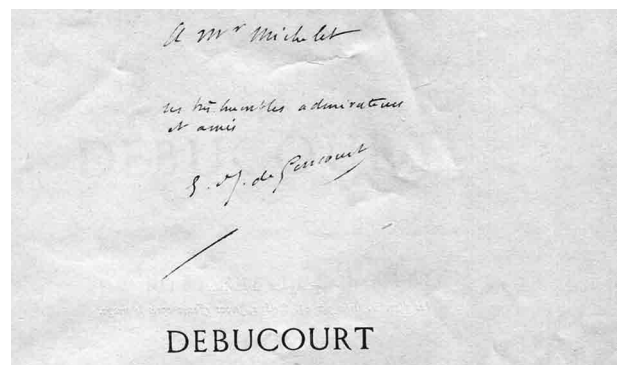 A Mr Michelet
ses très humbles admirateurs
et amis
E. et J. de Goncourt
DEBUCOURT